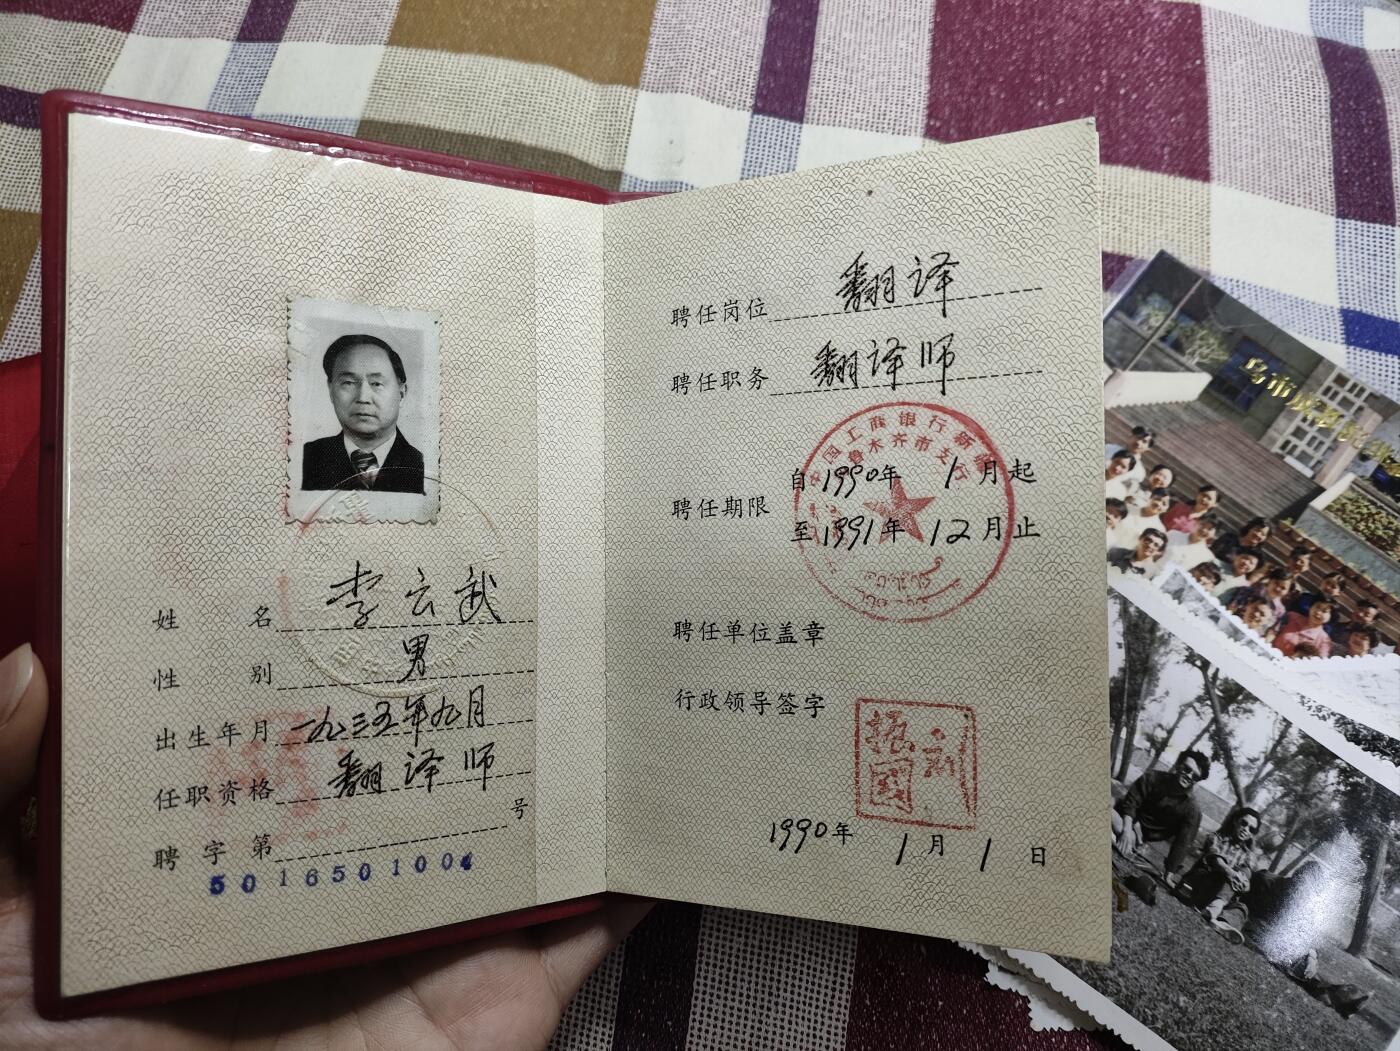 姓名 李云武
性别 男
出生年月 一九三五年九月
任职资格 翻译师
聘字第 号
5016501004
聘任岗位 翻译
聘任职务 翻译师
中国工商银行新疆
鲁木齐市支行
聘任期限
自1990年 1月起
至1991年 12月止
聘任单位盖章
行政领导签字
刘振國
1990年 1月 1日
乌市成教